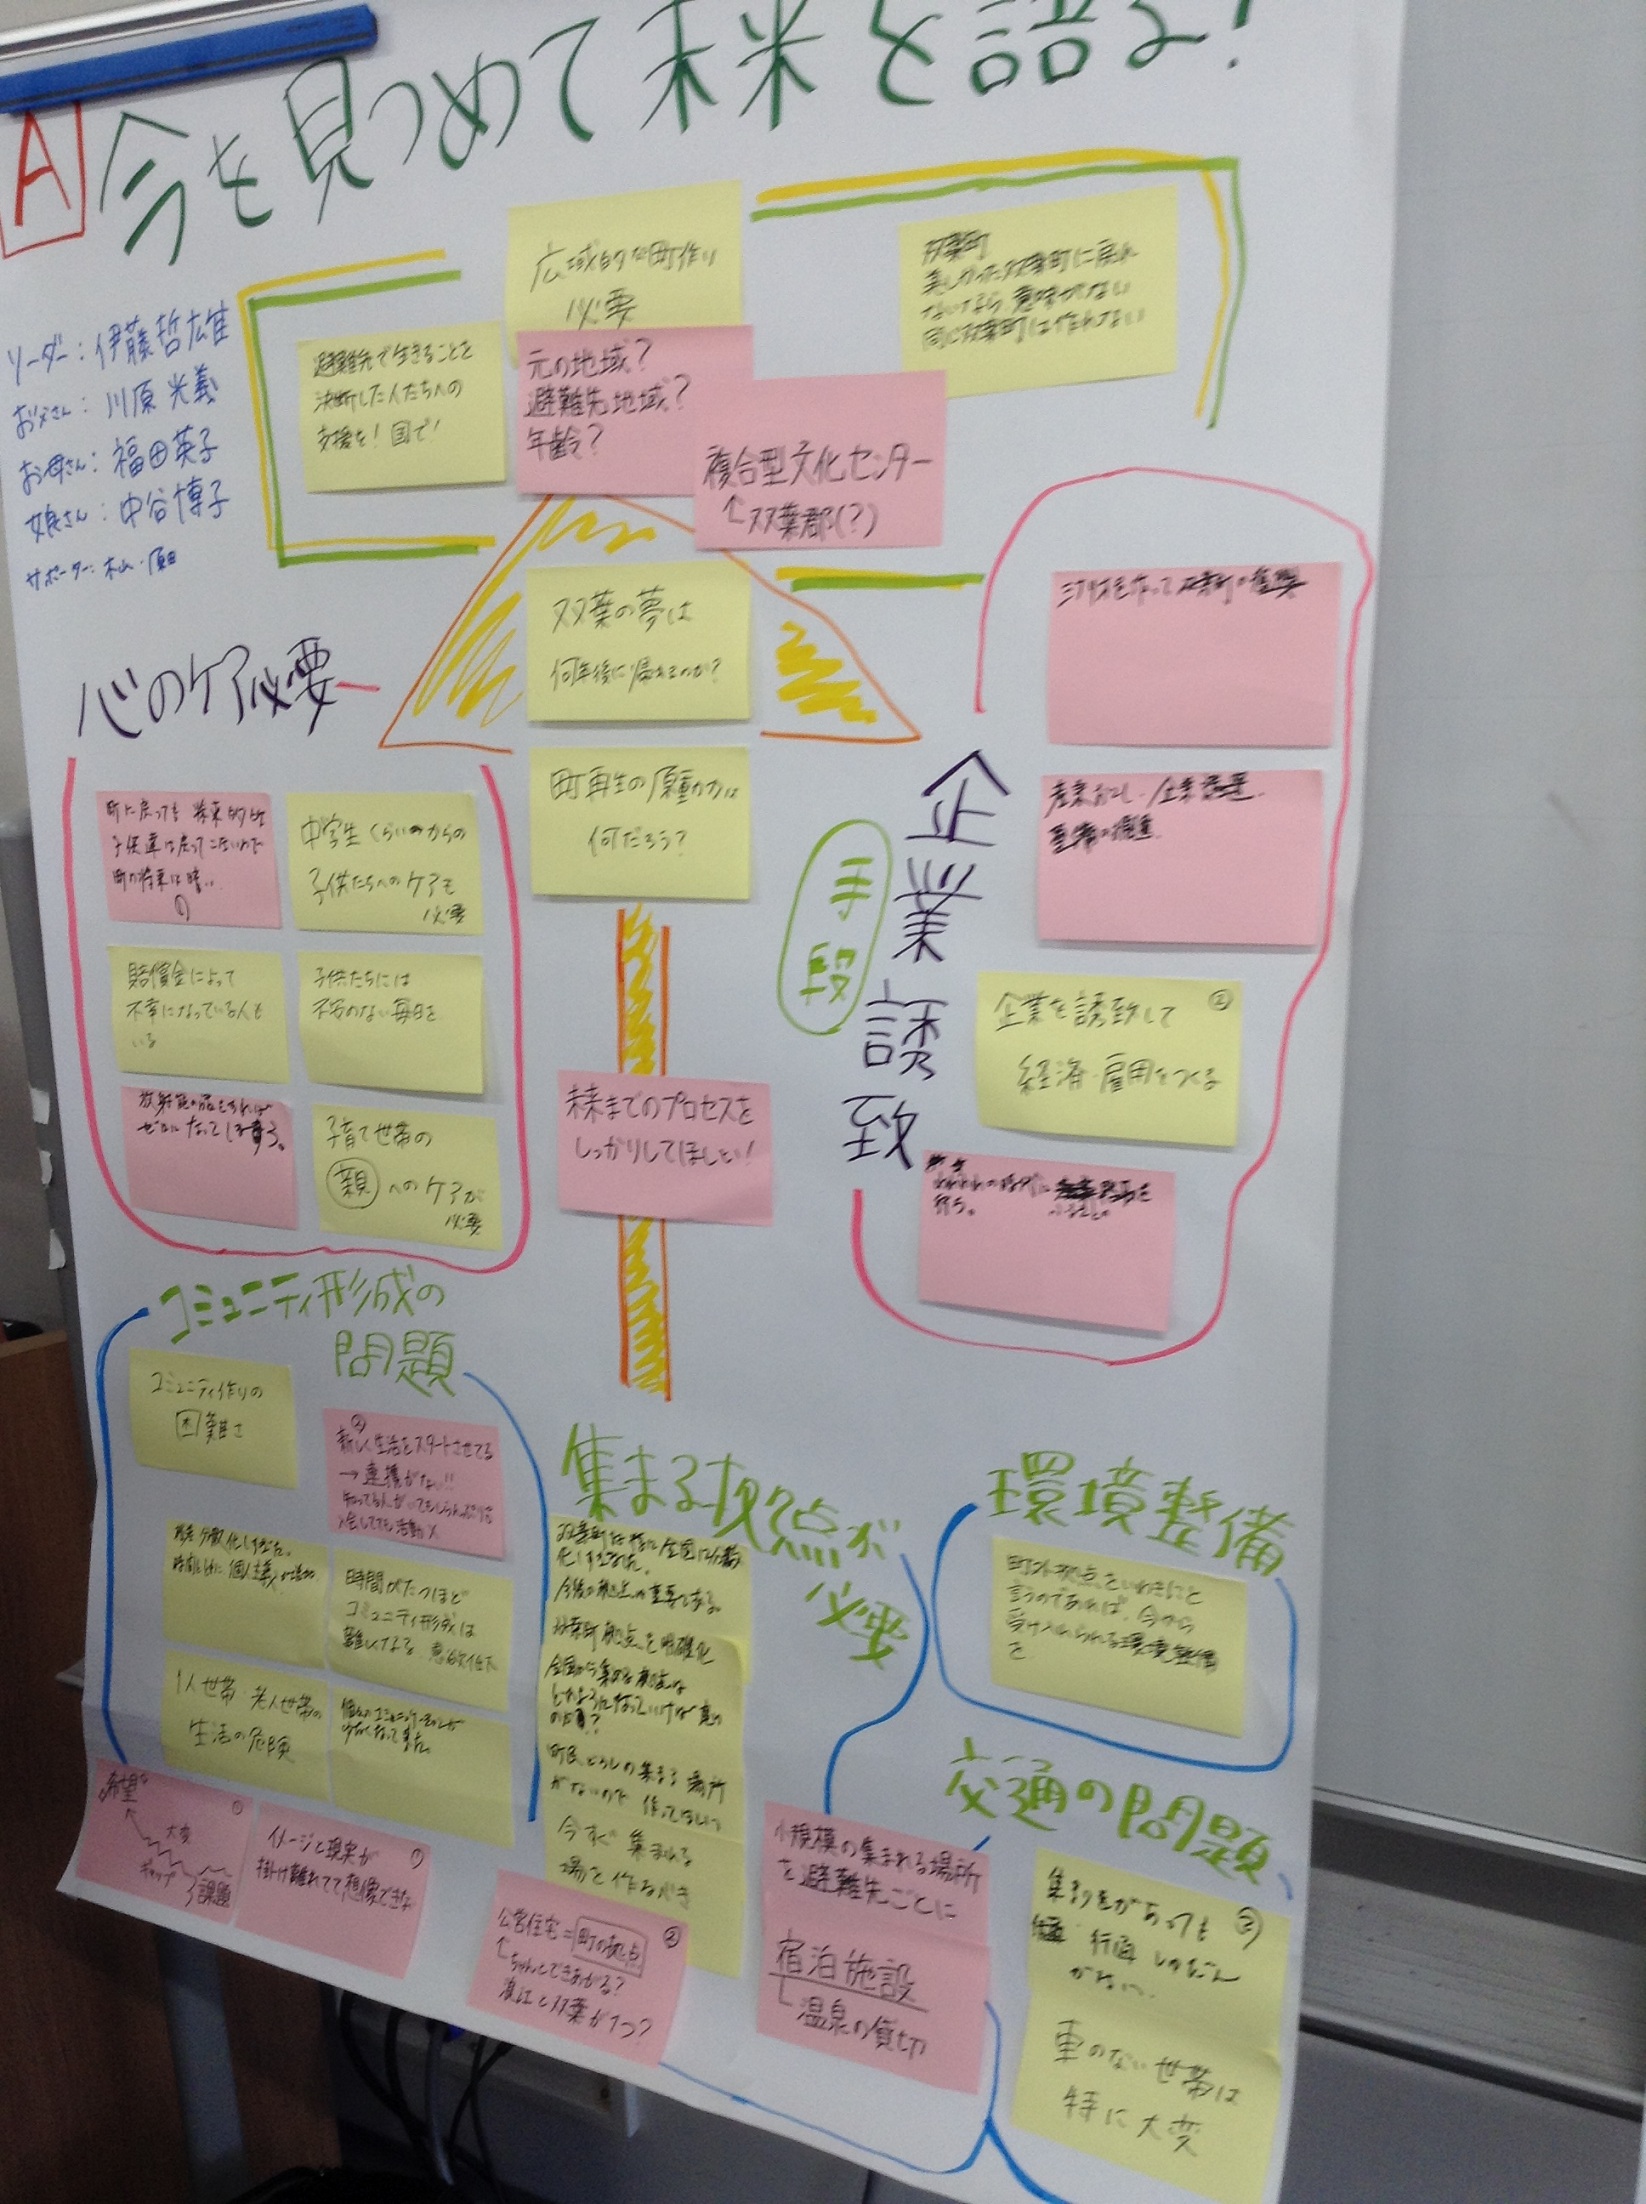 A
今を見つめて未来を語る!
リーダー:伊藤哲雄
お父さん:川原光義
お母さん:福田英子
娘さん:中谷博子
サポーター:
広域的な町作り
必要
双葉町
美しかった双葉町に戻れ
ないなら意味がない
同じ双葉町は作れない
避難先で生きることを
決断した人たちへの
支援を!国で!
元の地域?
避難先地域?
年齢?
複合型文化センター
↑双葉郡(?)
双葉の夢は
何年後に帰れるのか?
町再生の原動力は
何だろう?
未来までのプロセスを
しっかりしてほしい!
心のケア必要
町に戻っても将来的に
子供達は戻ってこないので
町の将来は暗い
中学生くらいのからの
子供たちへのケアも
必要
賠償金によって
不幸になっている人も
いる
子供たちには
不安のない毎日を
ゼロになってしまう。
子育て世帯の
親へのケアが
必要
手段
企業誘致
②
企業を誘致して
経済・雇用をつくる
行う。
コミュニティ形成の
問題
コミュニティ作りの
困難さ
②
新しく生活をスタートさせてる
→連携がない!!
時間がたつほど
コミュニティ形成は
難しくなる 意欲低下
1人世帯・老人世帯の
生活の危険
①
希望
大変
ギャップ
課題
①
イメージと現実が
掛け離れてて想像できな
集まる拠点が
必要
今後の拠点が重要である。
双葉町拠点を明確化
町民どうしの集まる場所
がないので 作ってほしい
今すぐ 集まれる
場を作るべき
②
公営住宅=町の拠点
↑ちゃんとできあがる?
浪江と双葉が1つ?
小規模の集まれる場所
を避難先ごとに
宿泊施設
温泉の貸切
環境整備
町外拠点をいわきにと
言うのであれば、今から
受け入れられる環境整備
を
交通の問題
③
集まりがあっても
車のない世帯は
特に大変